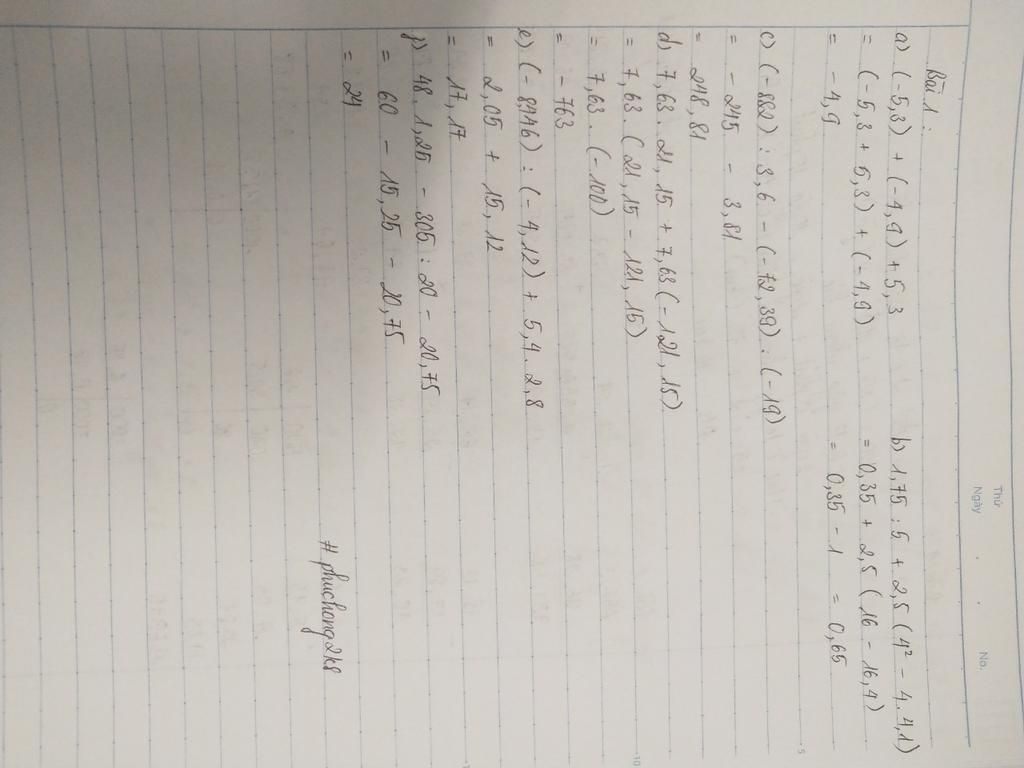 Thứ
Ngày . . No.
Bài 1:
a) (-5,3) + (-4,9) + 5,3
= (-5,3 + 5,3) + (-4,9)
= -4,9
b) 1,75 : 5 + 2,5 (4² - 4.4,1)
= 0,35 + 2,5 (16 - 16,4)
= 0,35 - 1 = 0,65
c) (-882) : 3,6 - (-72,39) : (-19)
= -245 - 3,81
= 248,81
d) 7,63 . 21,15 + 7,63 (-121,15)
= 7,63 . (21,15 - 121,15)
= 7,63 . (-100)
= -763
e) (-8,446) : (-4,12) + 5,4 . 2,8
= 2,05 + 15,12
= 17,17
f) 48 . 1,25 - 305 : 20 - 20,75
= 60 - 15,25 - 20,75
= 24
#phuchong2k8
5
10